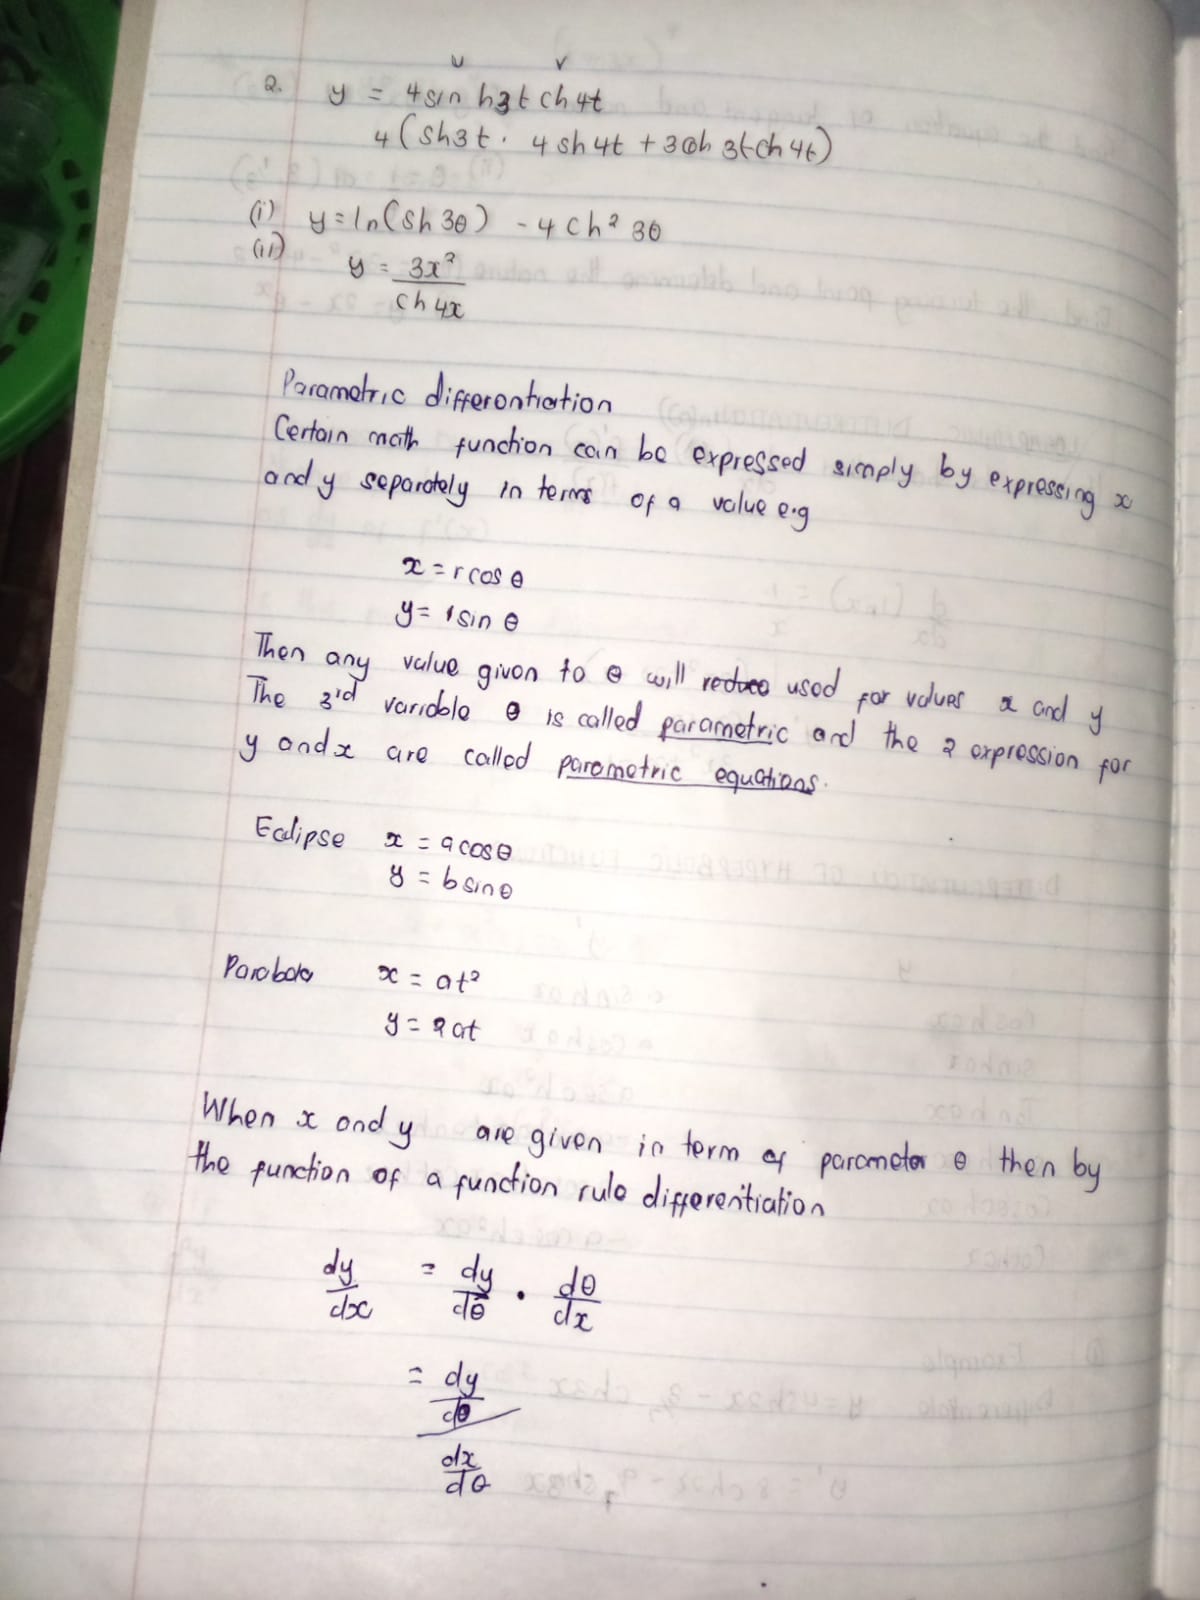 u v
2. y = 4sin h3t ch 4t
4(sh3t . 4 sh 4t + 3ch 3t ch 4t)
(i) y = ln(sh 3θ) - 4 ch² 3θ
(ii) y = 3x²
ch 4x
Parametric differentiation
Certain math function can be expressed simply by expressing x
and y separately in terms of a value e.g
x = r cos θ
y = r sin θ
Then any value given to θ will used for values x and y
The 3rd variable θ is called parametric and the 2 expression for
y and x are called parametric equations.
Eclipse x = a cos θ
y = b sin θ
Parabola x = at²
y = 2at
When x and y are given in term of parameter θ then by
the function of a function rule differentiation
dy/dx = dy/dθ . dθ/dx
= dy/dθ
dx/dθ